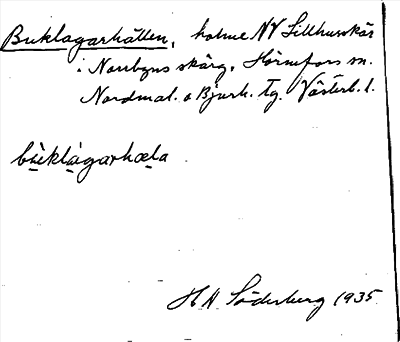 Buklagarhällen, holme NV Lillhusskär
i Norrbyns skärg. Hörnefors sn.
Nordmal. o Bjurh. tg. Västerb. l.
bu̱kla̱garhæ̱la
H H Söderberg 1935